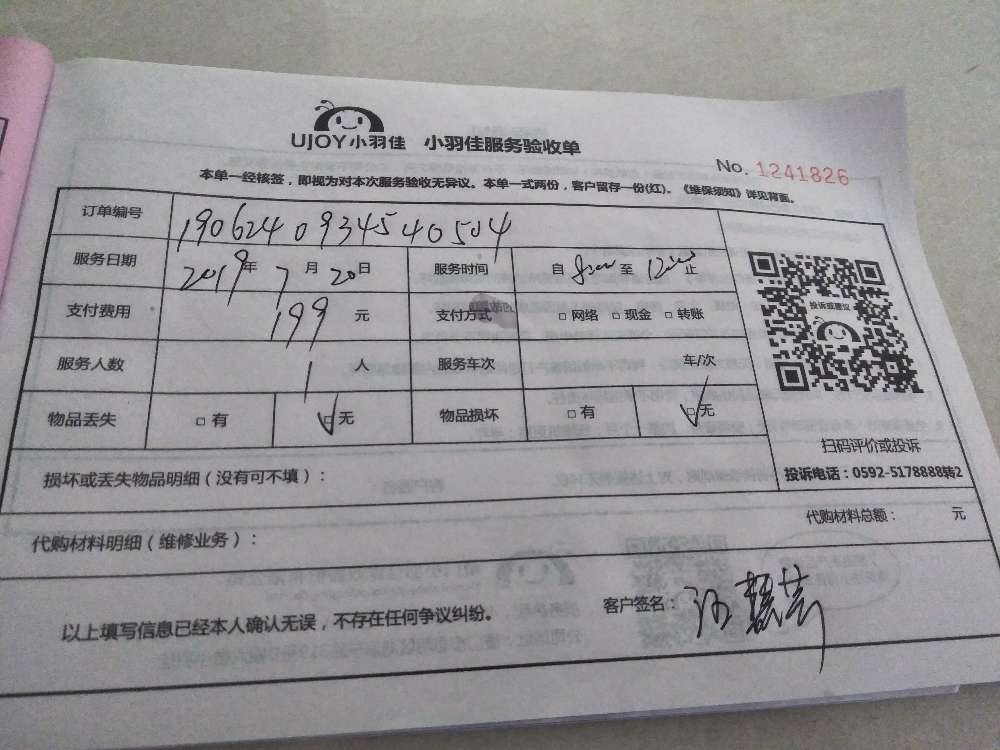 UJOY小羽佳 小羽佳服务验收单
No. 1241826
本单一经核签，即视为对本次服务验收无异议。本单一式两份，客户留存一份(红)。《维保须知》详见背面。
订单编号 1906240934540504
服务日期 2019年 7月 20日 服务时间 自 8:00 至 12:00 止
支付费用 199 元 支付方式 □ 网络 □ 现金 □ 转账
服务人数 1 人 服务车次 车/次
物品丢失 □ 有 ☑ 无 物品损坏 □ 有 ☑ 无
投诉或建议
扫码评价或投诉
投诉电话：0592-5178888转2
损坏或丢失物品明细（没有可不填）：
代购材料明细（维修业务）： 代购材料总额： 元
以上填写信息已经本人确认无误，不存在任何争议纠纷。 客户签名：